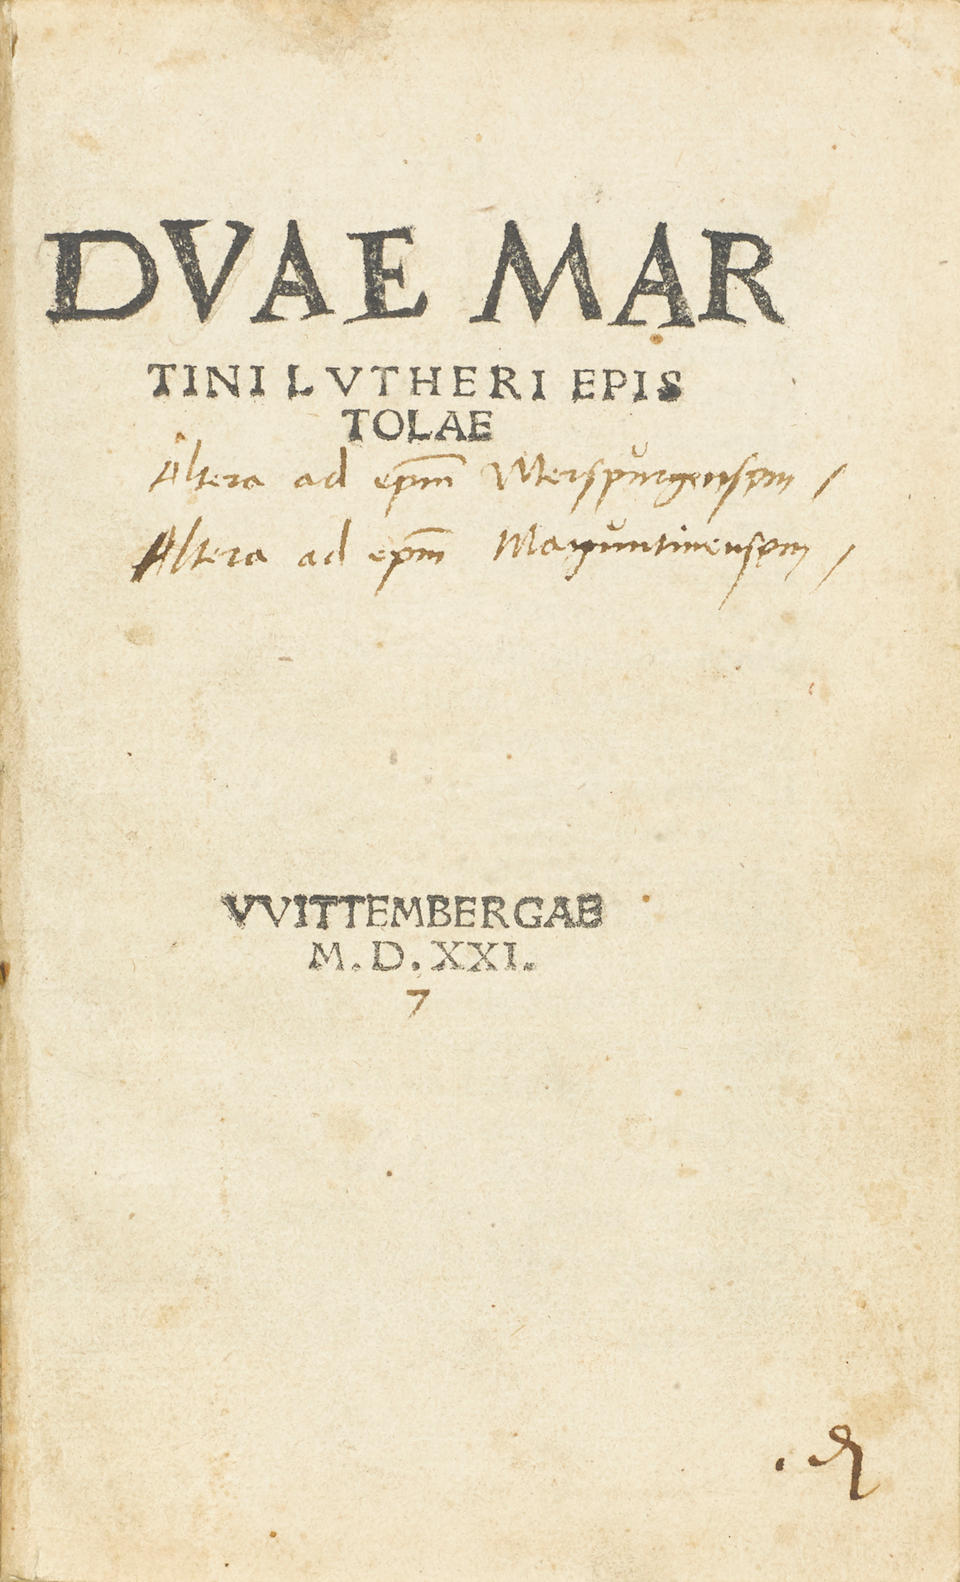 DVAE MAR
TINI LVTHERI EPIS
TOLAE
Altera ad ep̅m Merspurgensem /
Altera ad ep̅m Maguntinensem /
VVITTEMBERGAE
M. D. XXI.
7